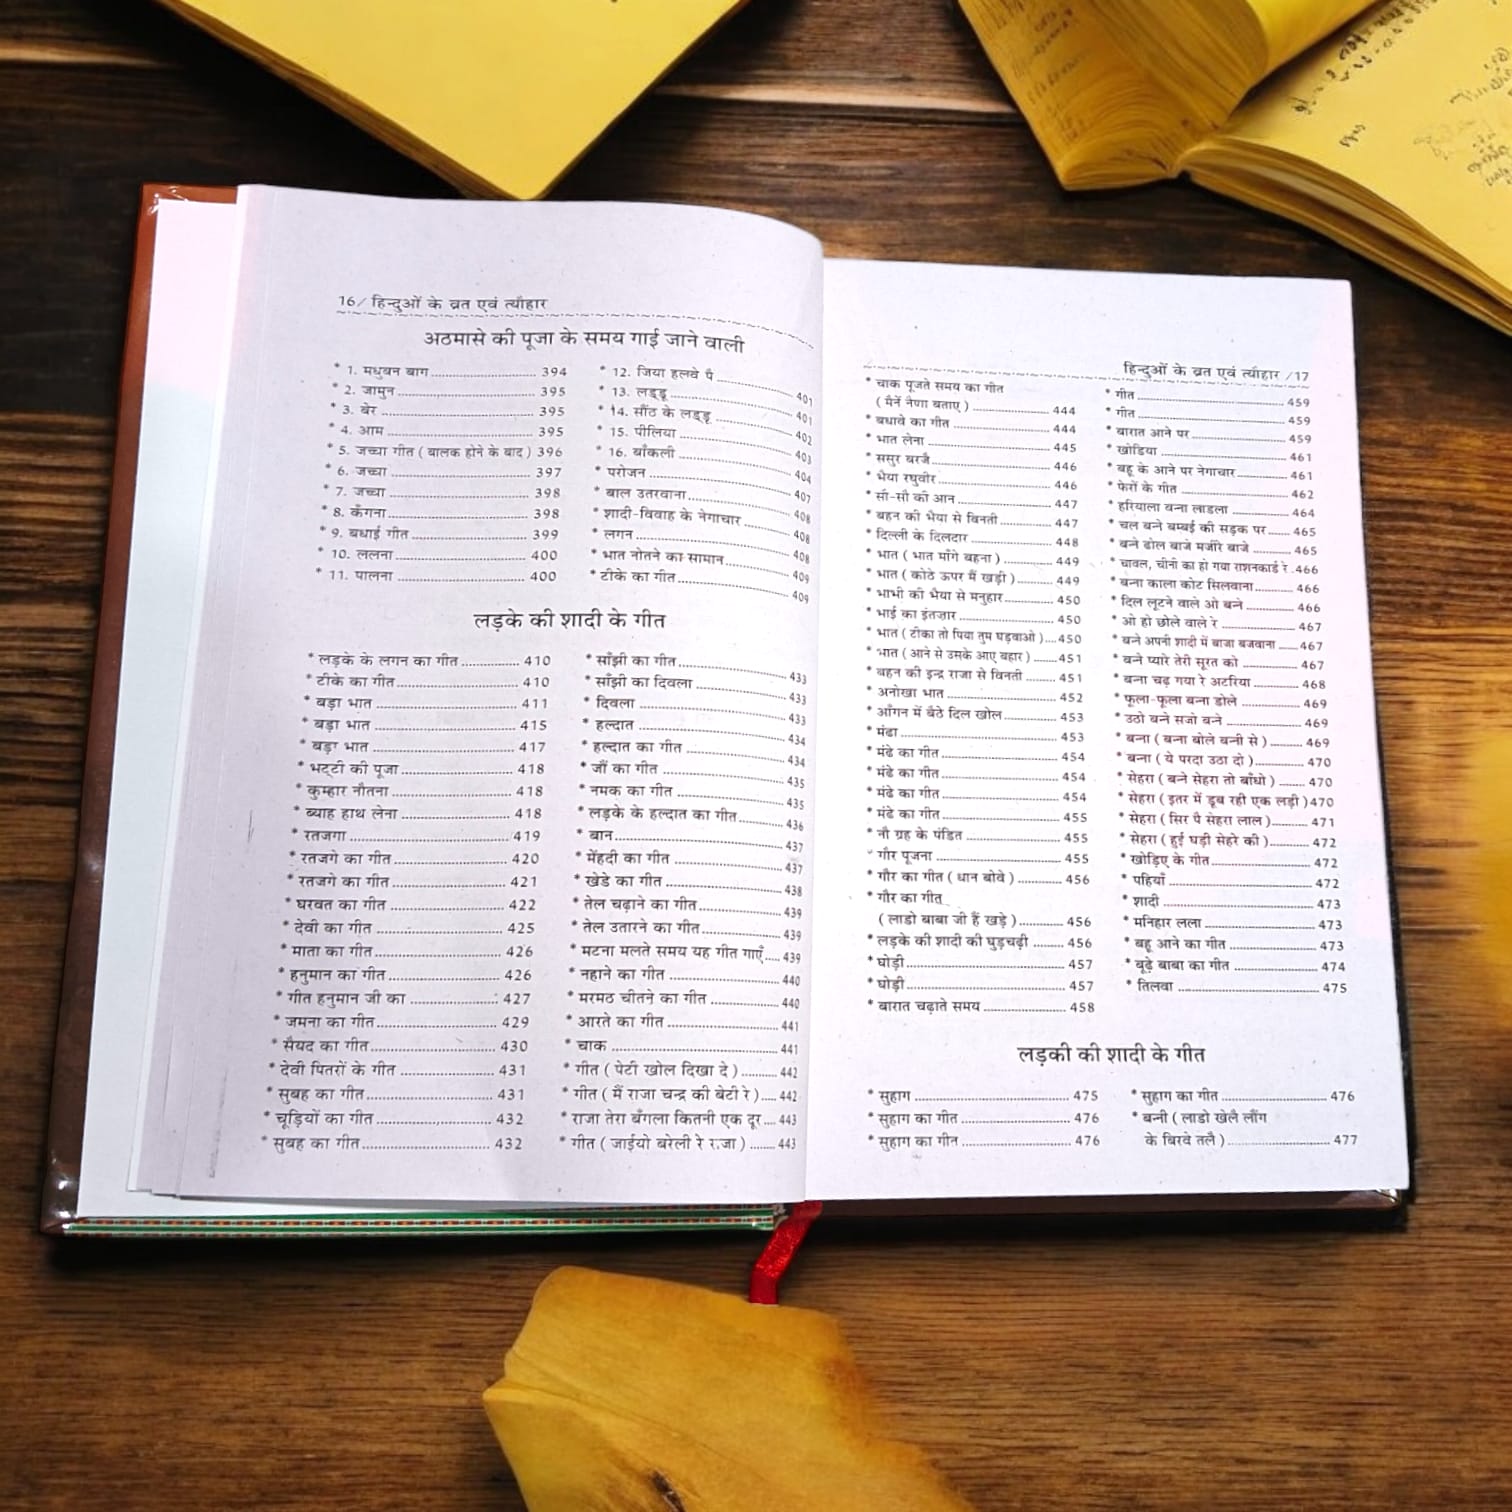 16/ हिन्दुओं के व्रत एवं त्यौहार
अठमासे की पूजा के समय गाई जाने वाली
* 1. मधुबन बाग 394
* 2. जामुन 395
* 3. बेर 395
* 4. आम 395
* 5. जच्चा गीत ( बालक होने के बाद ) 396
* 6. जच्चा 397
* 7. जच्चा 398
* 8. कँगना 398
* 9. बधाई गीत 399
* 10. ललना 400
* 11. पालना 400
* 12. जिया हलवे पै 401
* 13. लड्डू 401
* 14. सौंठ के लड्डू 402
* 15. पीलिया 403
* 16. बाँकली 404
* परोजन 407
* बाल उतरवाना 408
* शादी-विवाह के नेगाचार 408
* लगन 408
* भात नोतने का सामान 409
* टीके का गीत 409
लड़के की शादी के गीत
* लड़के के लगन का गीत 410
* टीके का गीत 410
* बड़ा भात 411
* बड़ा भात 415
* बड़ा भात 417
* भट्टी की पूजा 418
* कुम्हार नौतना 418
* ब्याह हाथ लेना 418
* रतजगा 419
* रतजगे का गीत 420
* रतजगे का गीत 421
* घरवत का गीत 422
* देवी का गीत 425
* माता का गीत 426
* हनुमान का गीत 426
* गीत हनुमान जी का 427
* जमना का गीत 429
* सैयद का गीत 430
* देवी पितरों के गीत 431
* सुबह का गीत 431
* चूड़ियों का गीत 432
* सुबह का गीत 432
* साँझी का गीत 433
* साँझी का दिवला 433
* दिवला 433
* हल्दात 434
* हल्दात का गीत 434
* जौं का गीत 435
* नमक का गीत 435
* लड़के के हल्दात का गीत 436
* बान 437
* मेंहदी का गीत 437
* खेडे का गीत 438
* तेल चढ़ाने का गीत 439
* तेल उतारने का गीत 439
* मटना मलते समय यह गीत गाएँ 439
* नहाने का गीत 440
* मरमठ चीतने का गीत 440
* आरते का गीत 441
* चाक 441
* गीत ( पेटी खोल दिखा दे ) 442
* गीत ( मैं राजा चन्द्र की बेटी रे ) 442
* राजा तेरा बँगला कितनी एक दूर 443
* गीत ( जाईयो बरेली रे राजा ) 443
हिन्दुओं के व्रत एवं त्यौहार /17
* चाक पूजते समय का गीत
( मैनें नैणा बताए ) 444
* बधावे का गीत 444
* भात लेना 445
* ससुर बरजै 446
* भैया रघुवीर 446
* सी-सौ की आन 447
* बहन की भैया से विनती 447
* दिल्ली के दिलदार 448
* भात ( भात माँगे बहना ) 449
* भात ( कोठे ऊपर मैं खड़ी ) 449
* भाभी की भैया से मनुहार 450
* भाई का इंतज़ार 450
* भात ( टीका तो पिया तुम घड़वाओ ) 450
* भात ( आने से उसके आए बहार ) 451
* बहन की इन्द्र राजा से विनती 451
* अनोखा भात 452
* आँगन में बैठे दिल खोल 453
* मंढा 453
* मंढे का गीत 454
* मंढे का गीत 454
* मंढे का गीत 454
* मंढे का गीत 455
* नौ ग्रह के पंडित 455
* गौर पूजना 455
* गौर का गीत ( धान बोवे ) 456
* गौर का गीत
( लाडो बाबा जी हैं खड़े ) 456
* लड़के की शादी की घुड़चढ़ी 456
* घोड़ी 457
* घोड़ी 457
* बारात चढ़ाते समय 458
* गीत 459
* गीत 459
* बारात आने पर 459
* खोडिया 461
* बहू के आने पर नेगाचार 461
* फेरों के गीत 462
* हरियाला बन्ना लाडला 464
* चल बन्ने बम्बई की सड़क पर 465
* बन्ने ढोल बाजे मजीरे बाजे 465
* चावल, चीनी का हो गया राशनकार्ड रे 466
* बन्ना काला कोट सिलवाना 466
* दिल लूटने वाले ओ बन्ने 466
* ओ हो छोले वाले रे 467
* बन्ने अपनी शादी में बाजा बजवाना 467
* बन्ने प्यारे तेरी सूरत को 467
* बन्ना चढ़ गया रे अटरिया 468
* फूला-फूला बन्ना डोले 469
* उठो बन्ने सजो बन्ने 469
* बन्ना ( बन्ना बोले बन्नी से ) 469
* बन्ना ( ये परदा उठा दो ) 470
* सेहरा ( बन्ने सेहरा तो बाँधो ) 470
* सेहरा ( इतर में डूब रही एक लड़ी )470
* सेहरा ( सिर पै सेहरा लाल ) 471
* सेहरा ( हुई घड़ी सेहरे की ) 472
* खोड़िए के गीत 472
* पहियाँ 472
* शादी 473
* मनिहार लला 473
* बहू आने का गीत 473
* बूढ़े बाबा का गीत 474
* तिलवा 475
लड़की की शादी के गीत
* सुहाग 475
* सुहाग का गीत 476
* सुहाग का गीत 476
* सुहाग का गीत 476
* बन्नी ( लाडो खेलै लौंग
के बिरवे तलै ) 477